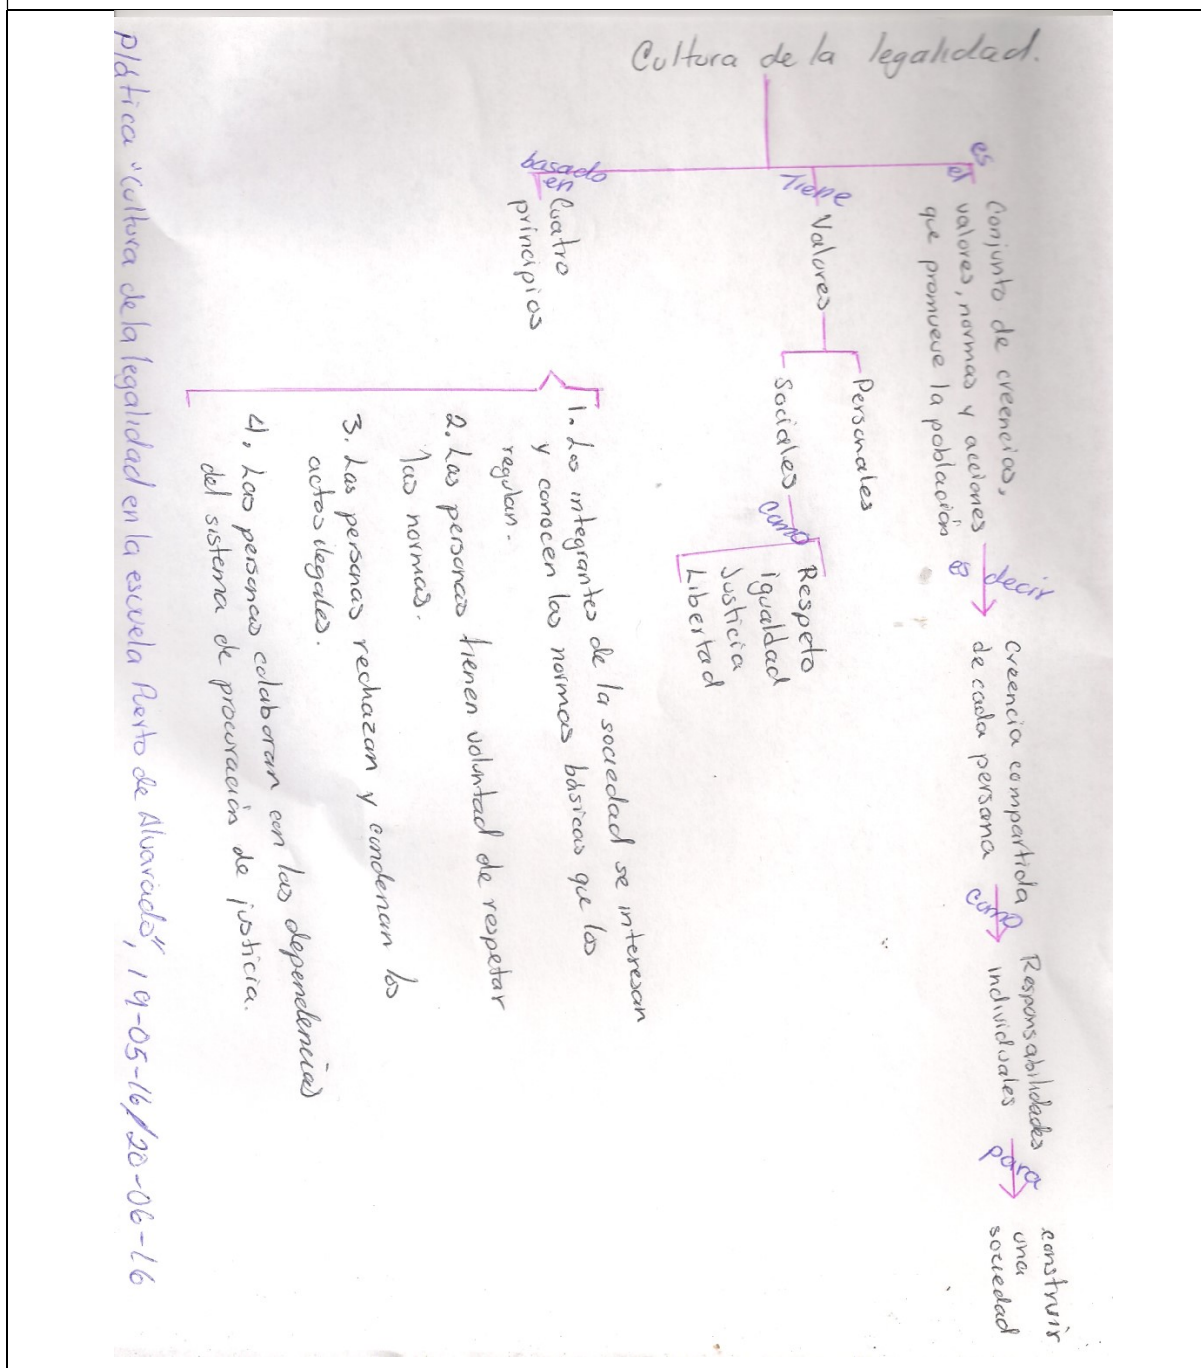 Cultura de la legalidad.
es
el
Conjunto de creencias,
valores, normas y acciones
que promueve la población
es decir
creencia compartida
de cada persona
como
Responsabilidades
individuales
para
construir
una
sociedad
Tiene
Valores
Personales
Sociales
como
Respeto
igualdad
Justicia
Libertad
basado
en
Cuatro
principios
1. Los integrantes de la sociedad se interesan
y conocen las normas básicas que los
regulan.
2. Las personas tienen voluntad de respetar
las normas.
3. Las personas rechazan y condenan los
actos ilegales.
4. Las personas colaboran con las dependencias
del sistema de procuración de justicia.
Plática "Cultura de la legalidad en la escuela Puerto de Alvarado", 19-05-16/20-06-16